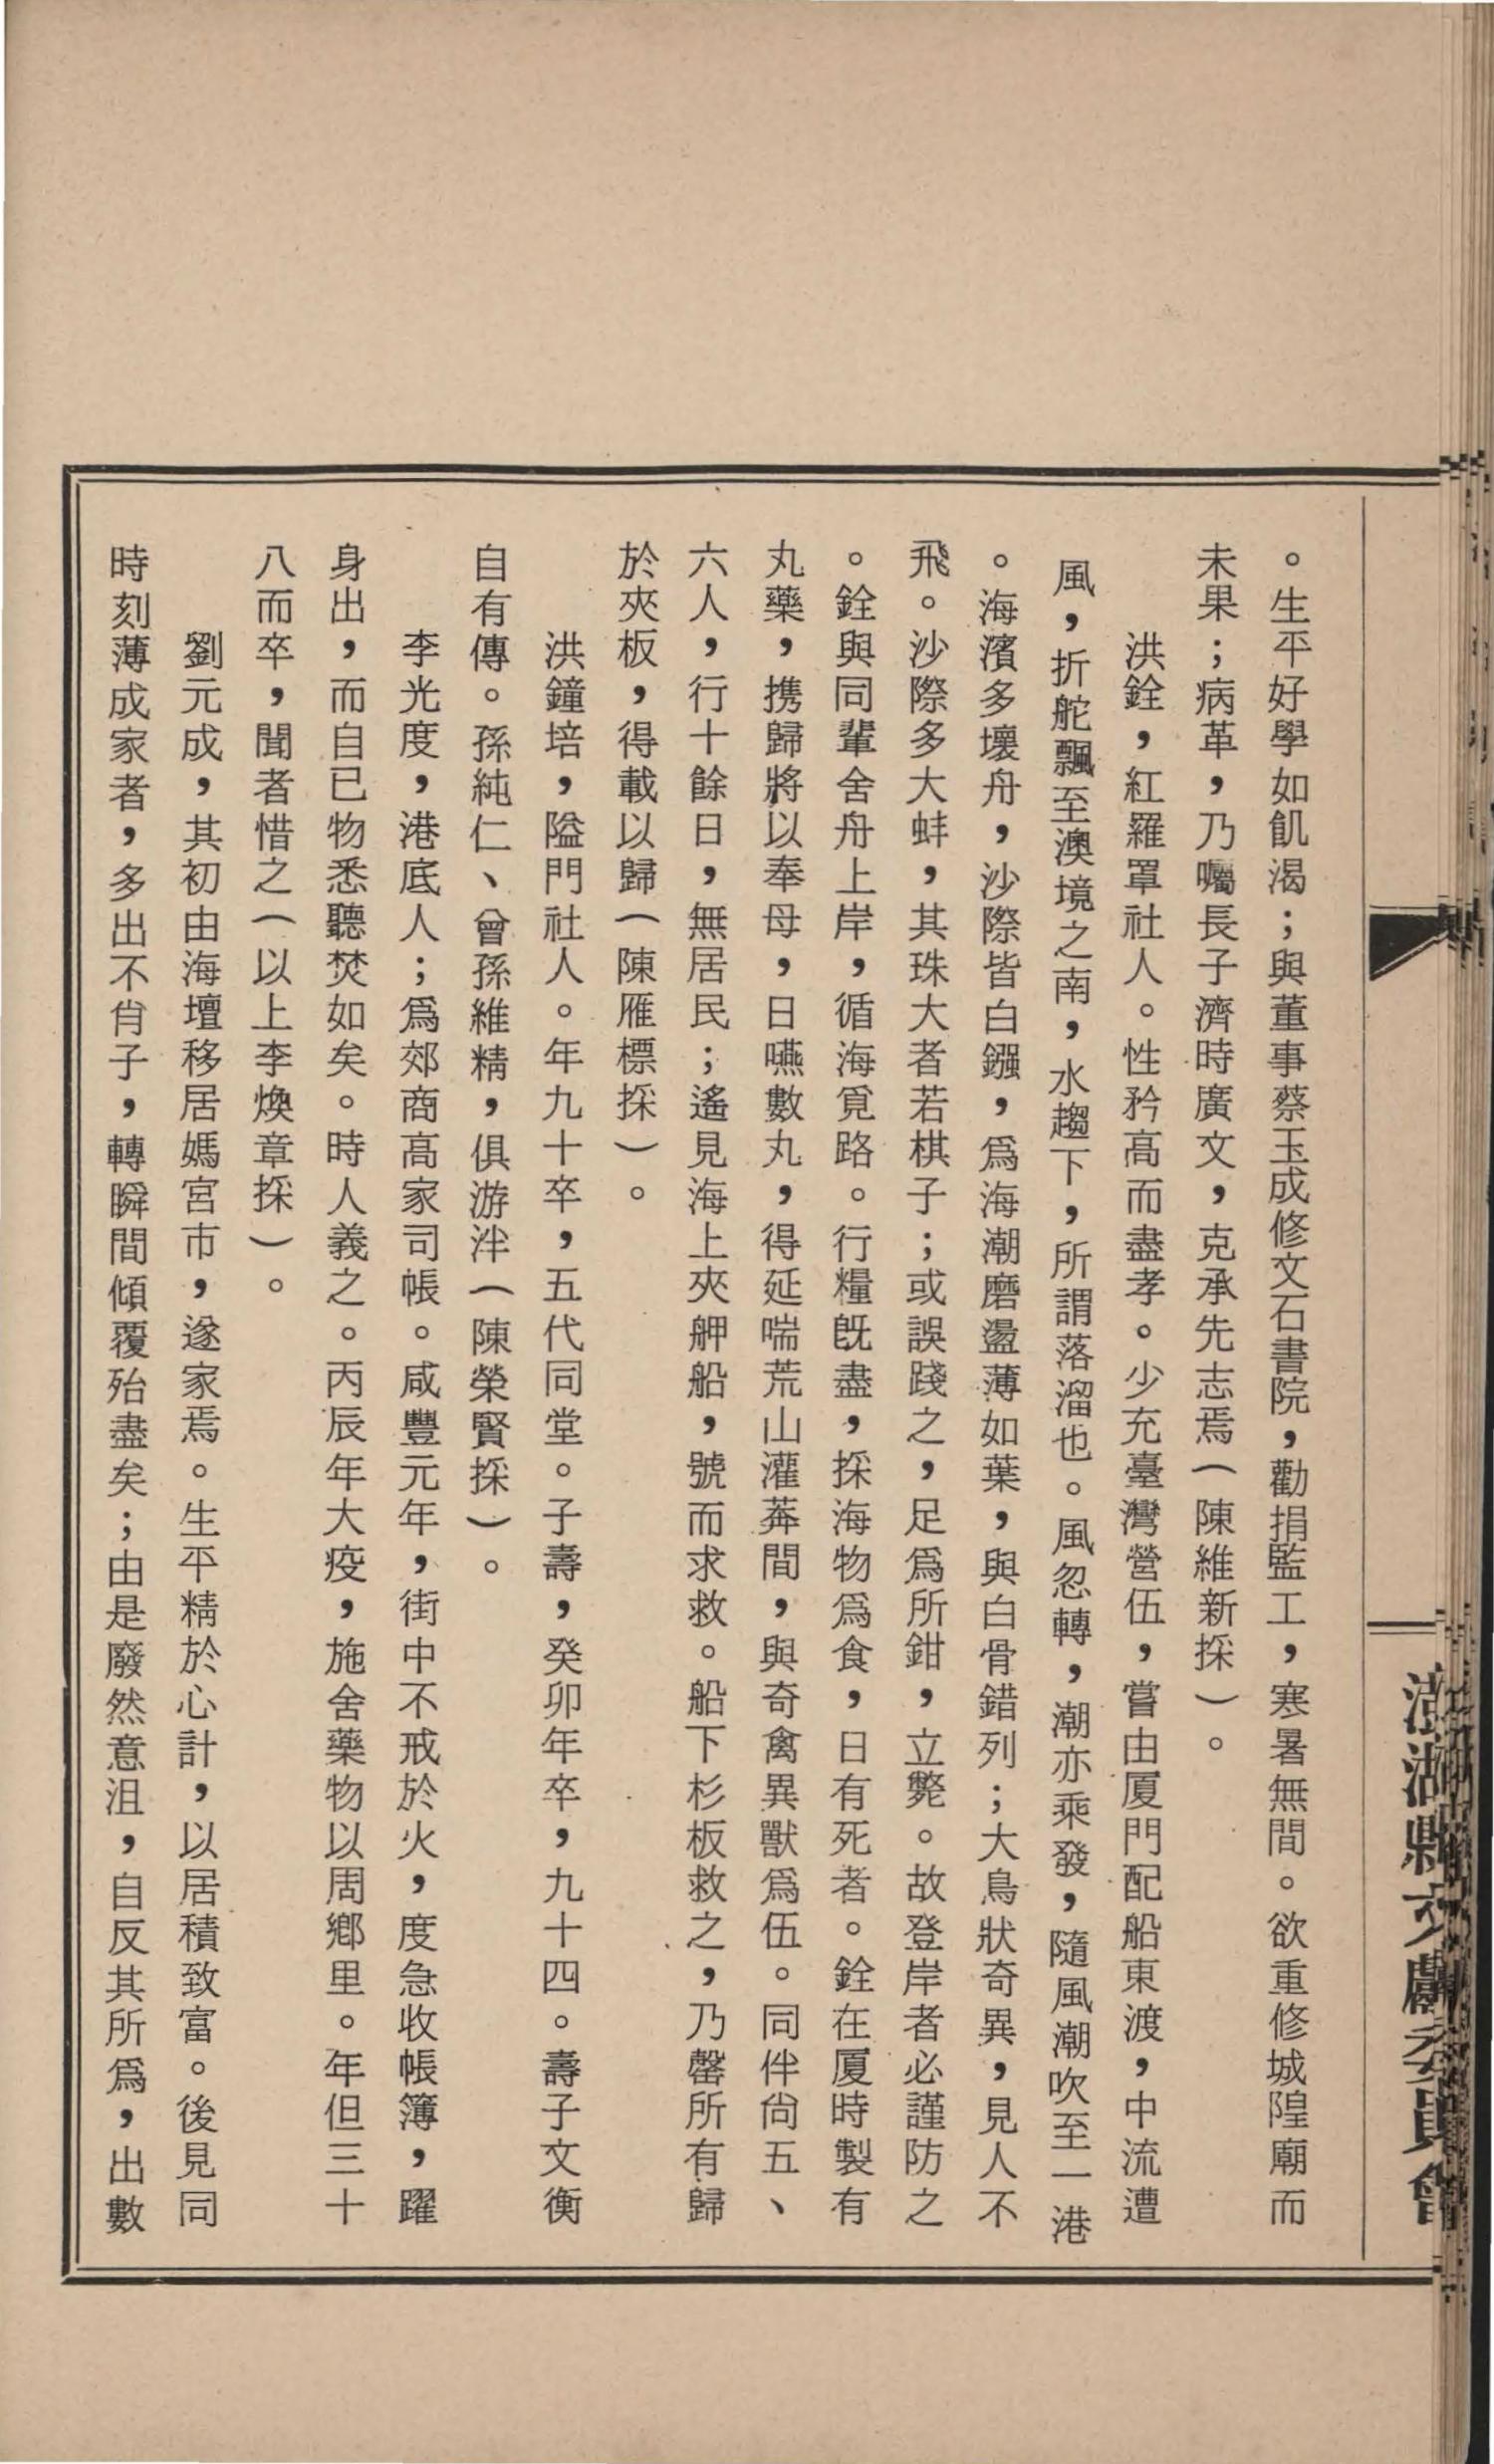 。生平好學如飢渴；與董事蔡玉成修文石書院，勸捐監工，寒暑無間。欲重修城隍廟而
未果；病革，乃囑長子濟時廣文，克承先志焉（陳維新採）。
洪銓，紅羅罩社人。性矜高而盡孝。少充臺灣營伍，嘗由厦門配船東渡，中流遭
風，折舵飄至澳境之南，水趨下，所謂落溜也。風忽轉，潮亦乘發，隨風潮吹至一港
。海濱多壞舟，沙際皆白鏹，爲海潮磨盪薄如葉，與白骨錯列；大鳥狀奇異，見人不
飛。沙際多大蚌，其珠大者若棋子；或誤踐之，足爲所鉗，立斃。故登岸者必謹防之
。銓與同輩舍舟上岸，循海覓路。行糧旣盡，採海物爲食，日有死者。銓在厦時製有
丸藥，携歸將以奉母，日嚥數丸，得延喘荒山灌莽間，與奇禽異獸爲伍。同伴尙五、
六人，行十餘日，無居民；遙見海上夾舺船，號而求救。船下杉板救之，乃罄所有歸
於夾板，得載以歸（陳雁標採）。
洪鐘培，隘門社人。年九十卒，五代同堂。子壽，癸卯年卒，九十四。壽子文衡
自有傳。孫純仁、曾孫維精，俱游泮（陳榮賢採）。
李光度，港底人；爲郊商高家司帳。咸豐元年，街中不戒於火，度急收帳簿，躍
身出，而自已物悉聽焚如矣。時人義之。丙辰年大疫，施舍藥物以周鄉里。年但三十
八而卒，聞者惜之（以上李煥章採）。
劉元成，其初由海壇移居媽宮市，遂家焉。生平精於心計，以居積致富。後見同
時刻薄成家者，多出不肖子，轉瞬間傾覆殆盡矣；由是廢然意沮，自反其所爲，出數
澎湖縣文獻委員會